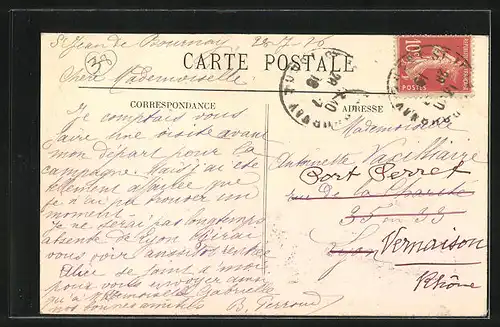 St Jean de Bournay 28-7-10
38
CARTE POSTALE
Chère Mademoiselle
CORRESPONDANCE
ADRESSE
Je comptais vous
faire une visite avant
mon départ pour la
campagne. Mais j'ai été
tellement que
je n'ai pu trouver un
moment.
Je ne serai pas longtemps
de Lyon
vous voir aussitôt rentrée
Alice se joint à moi
pour vous envoyer ainsi
qu'à Mademoiselle Gabrielle
nos bonnes amitiés B. Ferroud
Mademoiselle
Antoinette
Port Perret
rue de la Charité
35 33
Lyon Vernaison
Rhône
10
POSTES